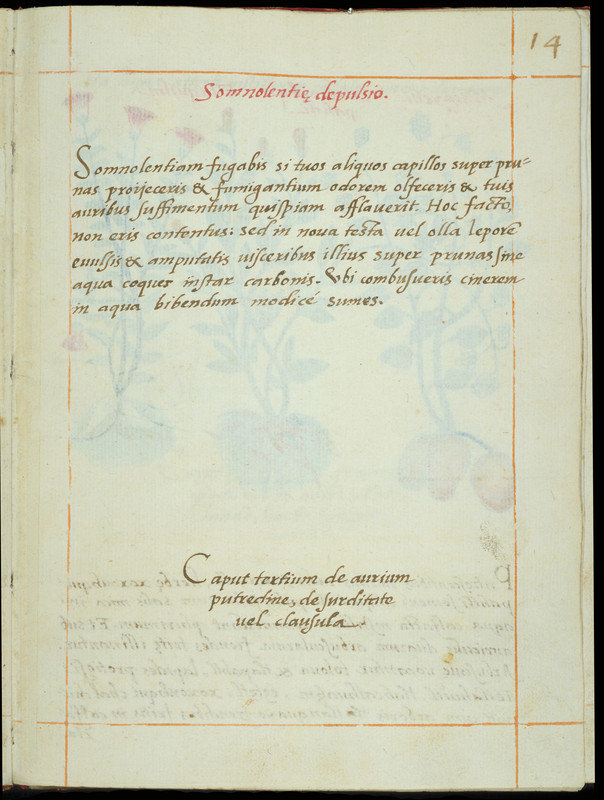 14
Somnolentię depulsio.
Somnolentiam fugabis si tuos aliquos capillos super pru=
nas proijeceris & fumigantium odorem olfeceris & tuis
auribus suffimentum quispiam afflaverit. Hoc facto,
non eris contentus: sed in nova testa vel olla leporē
evulsis & amputatis visceribus illius super prunas sine
aqua coques instar carbonis. Ubi combusueris cinerem
in aqua bibendum modicé sumes.
Caput tertium de aurium
putredine, de surditate
vel clausula.